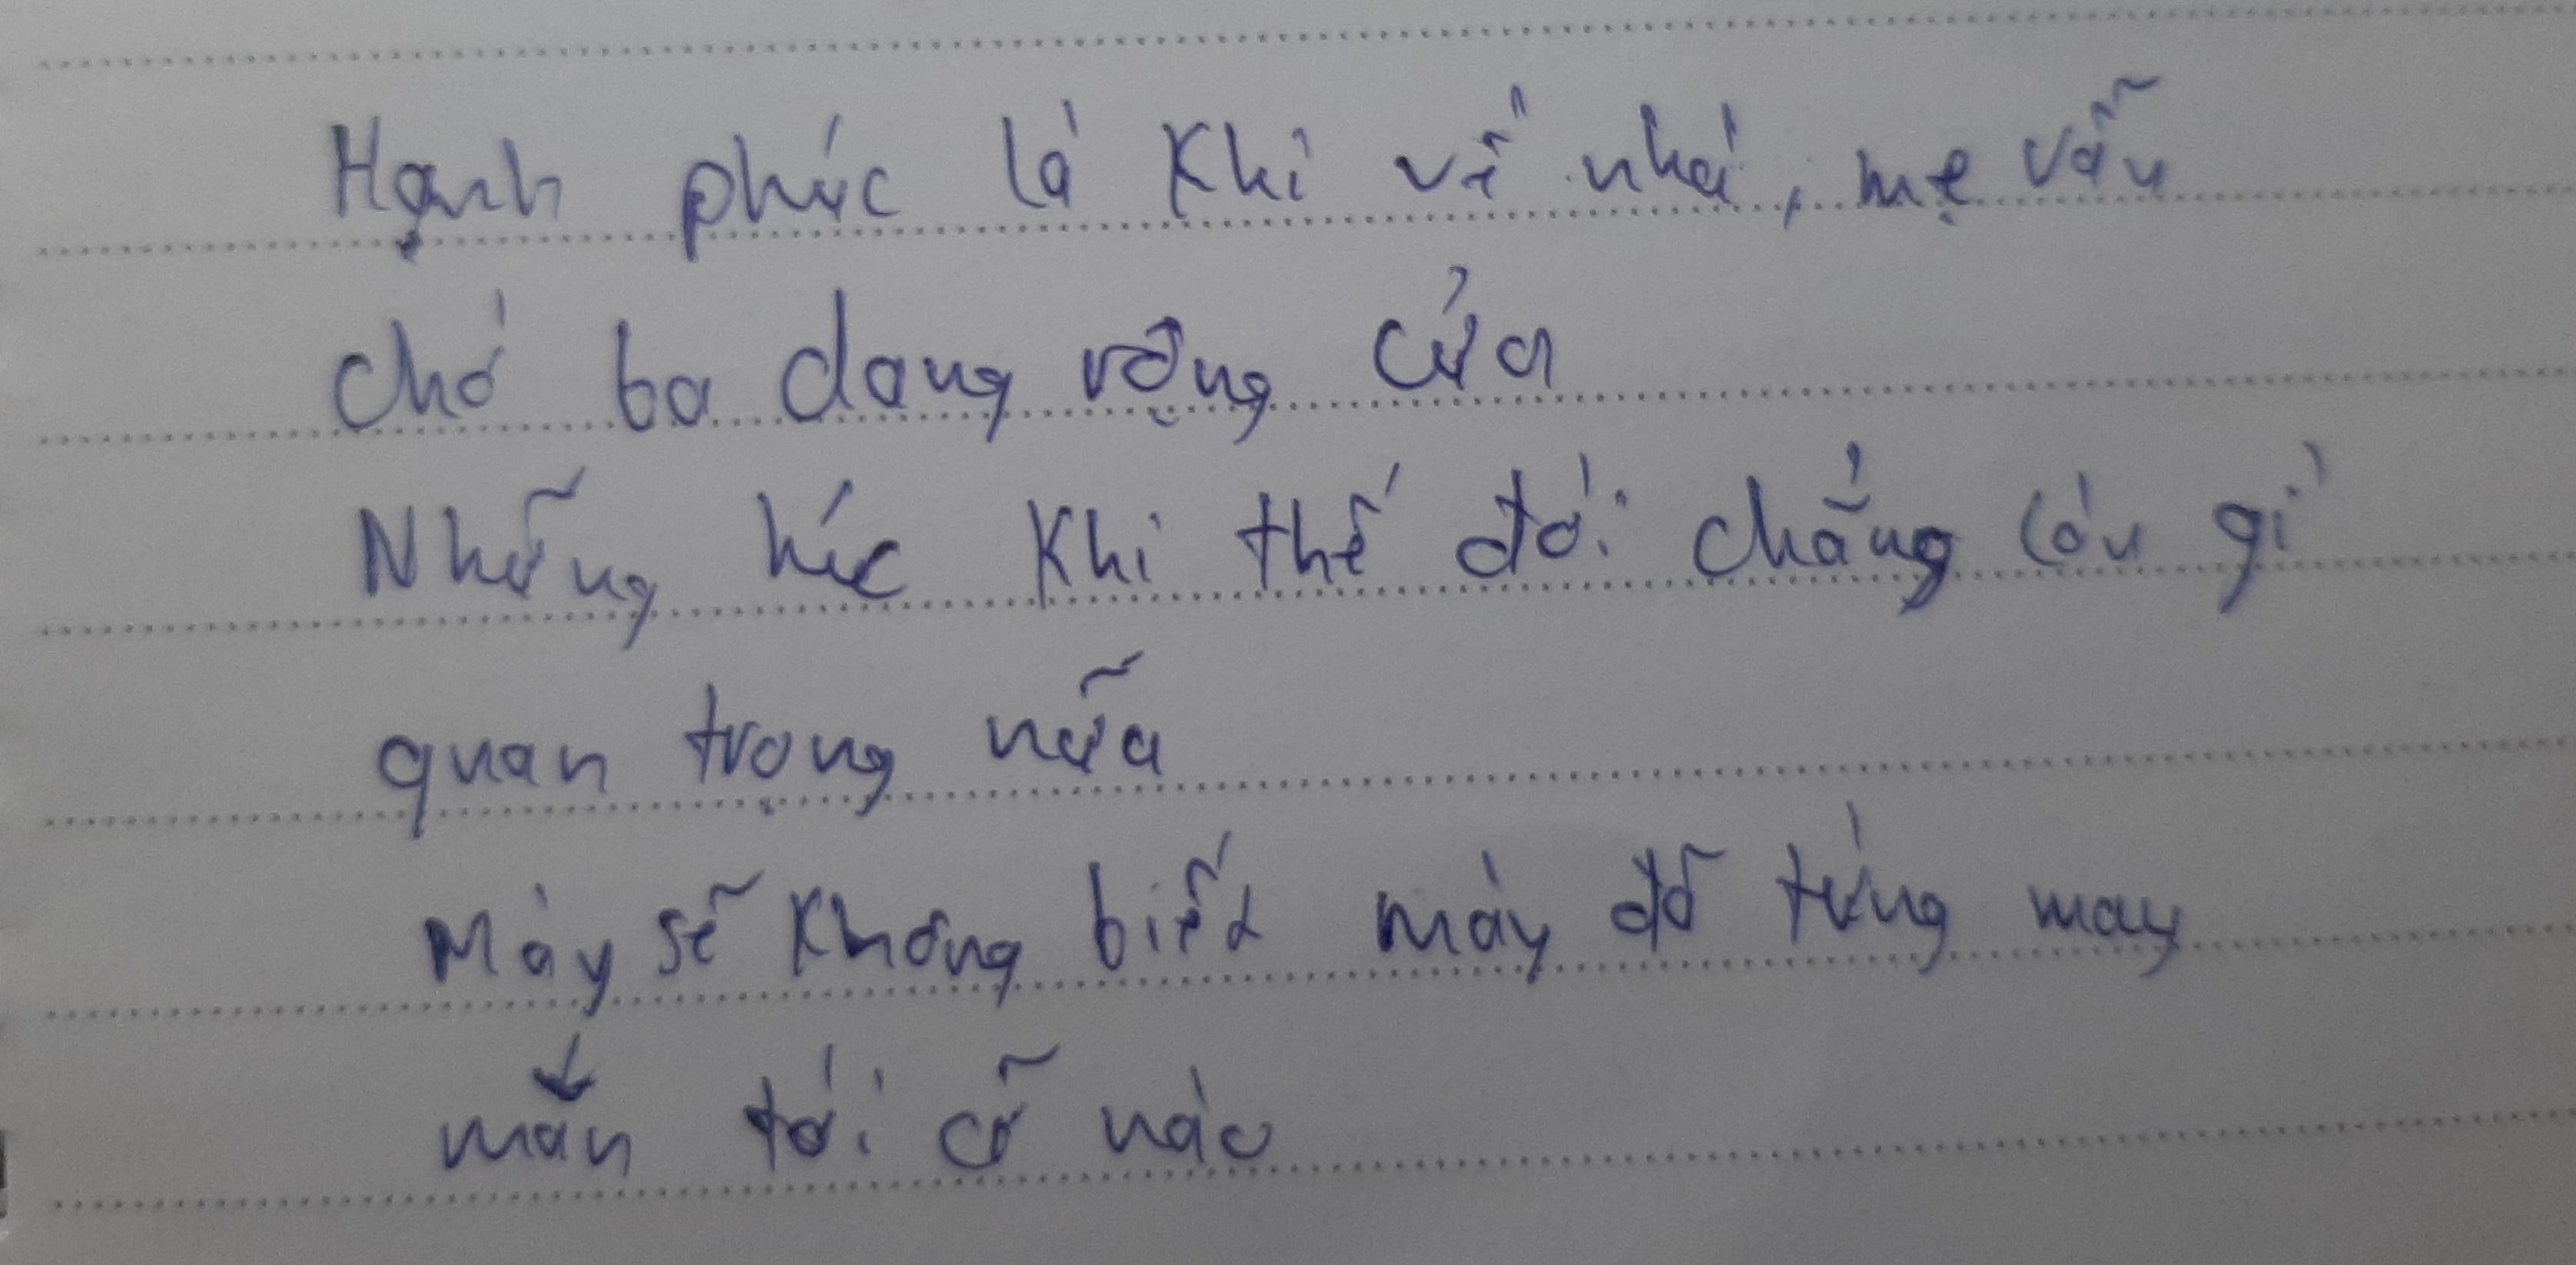 Hạnh phúc là khi về nhà, mẹ vẫn
chờ ba dang rộng cửa
Những lúc khi thế đời chẳng còn gì
quan trọng nữa
Mày sẽ không biết mày đã từng may
mắn tới cỡ nào